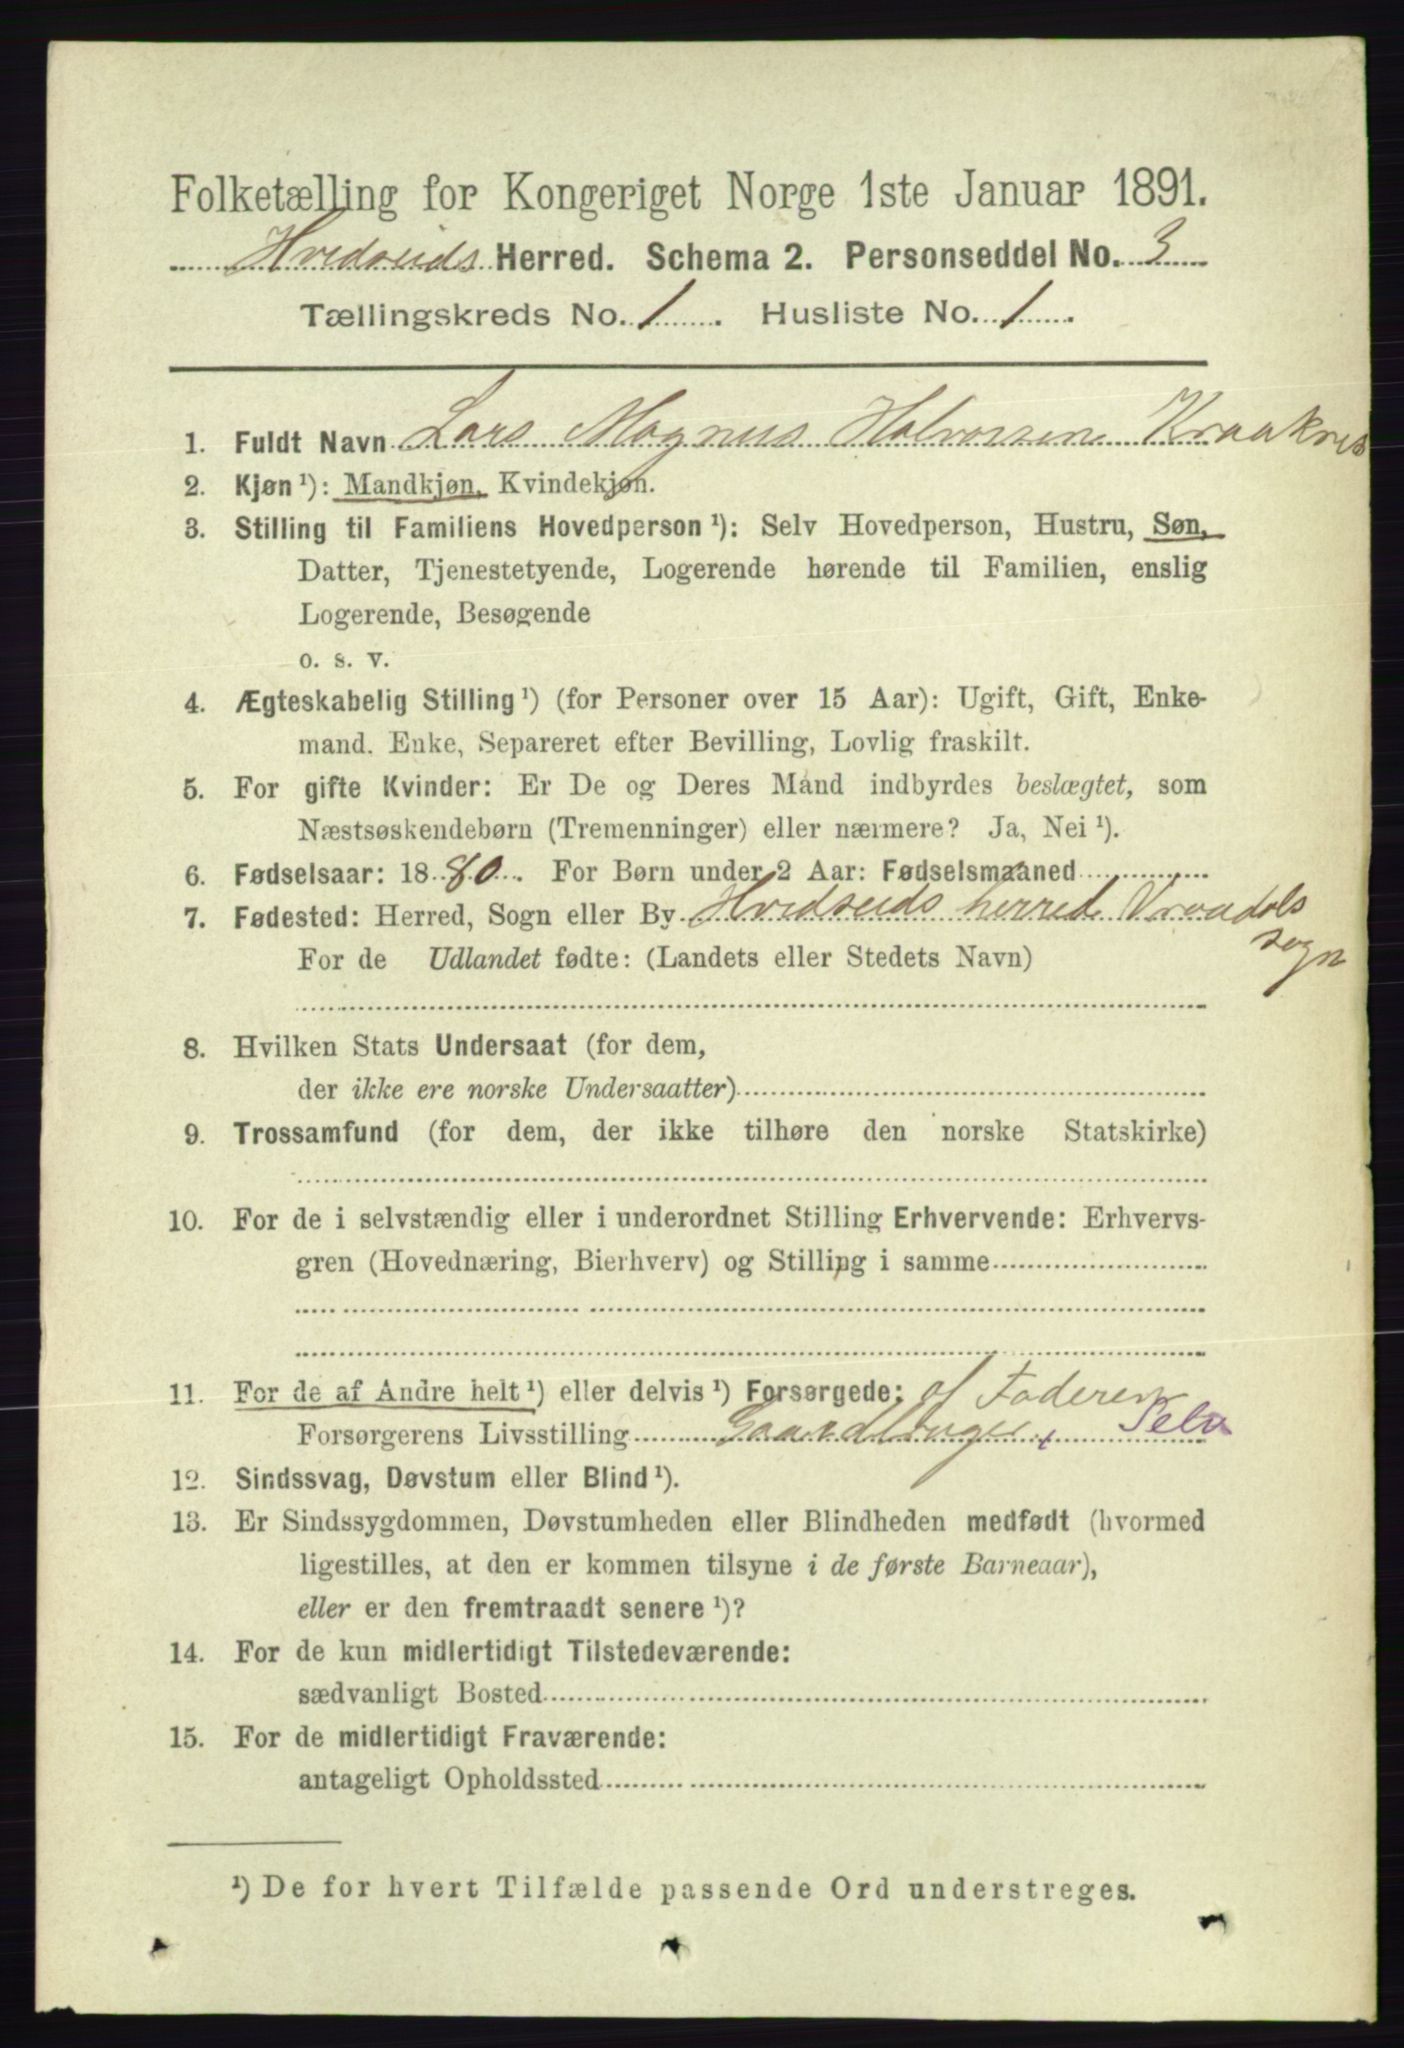 Folketælling for Kongeriget Norge 1ste Januar 1891.
Hvidseids Herred. Schema 2. Personseddel No. 3
Tællingskreds No. 1. Husliste No. 1.
1. Fuldt Navn Lars Magnus Halvorsen
2. Kjøn ¹): Mandkjøn, Kvindekjøn.
3. Stilling til Familiens Hovedperson ¹): Selv Hovedperson, Hustru, Søn,
Datter, Tjenestetyende, Logerende hørende til Familien, enslig
Logerende, Besøgende
o. s. v.
4. Ægteskabelig Stilling ¹) (for Personer over 15 Aar): Ugift, Gift, Enke-
mand. Enke, Separeret efter Bevilling, Lovlig fraskilt.
5. For gifte Kvinder: Er De og Deres Mand indbyrdes beslægtet, som
Næstsøskendebørn (Tremenninger) eller nærmere? Ja, Nei ¹).
6. Fødselsaar: 1880. For Børn under 2 Aar: Fødselsmaaned
7. Fødested: Herred, Sogn eller By Hvidseids herred Vraadals
sogn
For de Udlandet fødte: (Landets eller Stedets Navn)
8. Hvilken Stats Undersaat (for dem,
der ikke ere norske Undersaatter)
9. Trossamfund (for dem, der ikke tilhøre den norske Statskirke)
10. For de i selvstændig eller i underordnet Stilling Erhvervende: Erhvervs-
gren (Hovednæring, Bierhverv) og Stilling i samme
11. For de af Andre helt ¹) eller delvis ¹) Forsørgede: af Faderen
Forsørgerens Livsstilling Gaardbruger, Selv
12. Sindssvag, Døvstum eller Blind ¹).
13. Er Sindssygdommen, Døvstumheden eller Blindheden medfødt (hvormed
ligestilles, at den er kommen tilsyne i de første Barneaar),
eller er den fremtraadt senere ¹)?
14. For de kun midlertidigt Tilstedeværende:
sædvanligt Bosted
15. For de midlertidigt Fraværende:
antageligt Opholdssted
¹) De for hvert Tilfælde passende Ord understreges.